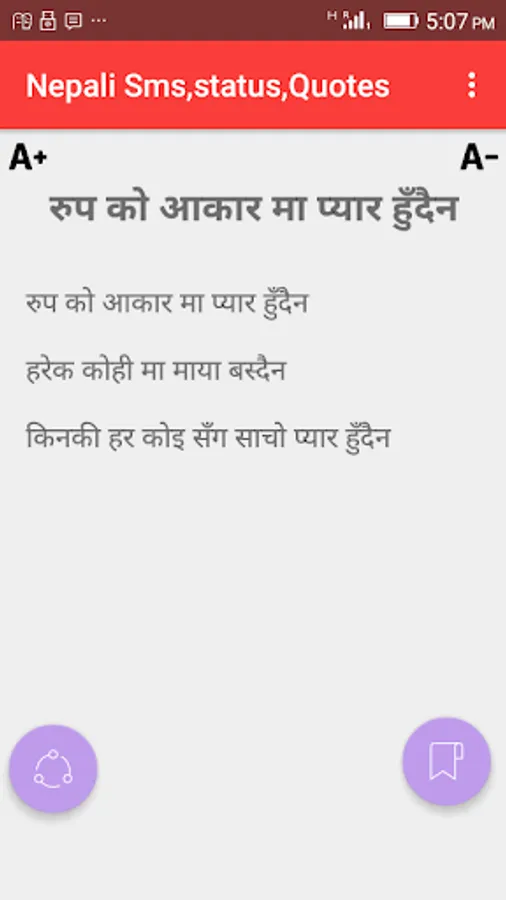 5:07 PM
Nepali Sms,status,Quotes
A+ A-
रुप को आकार मा प्यार हुँदैन
रुप को आकार मा प्यार हुँदैन
हरेक कोही मा माया बस्दैन
किनकी हर कोइ सँग साचो प्यार हुँदैन